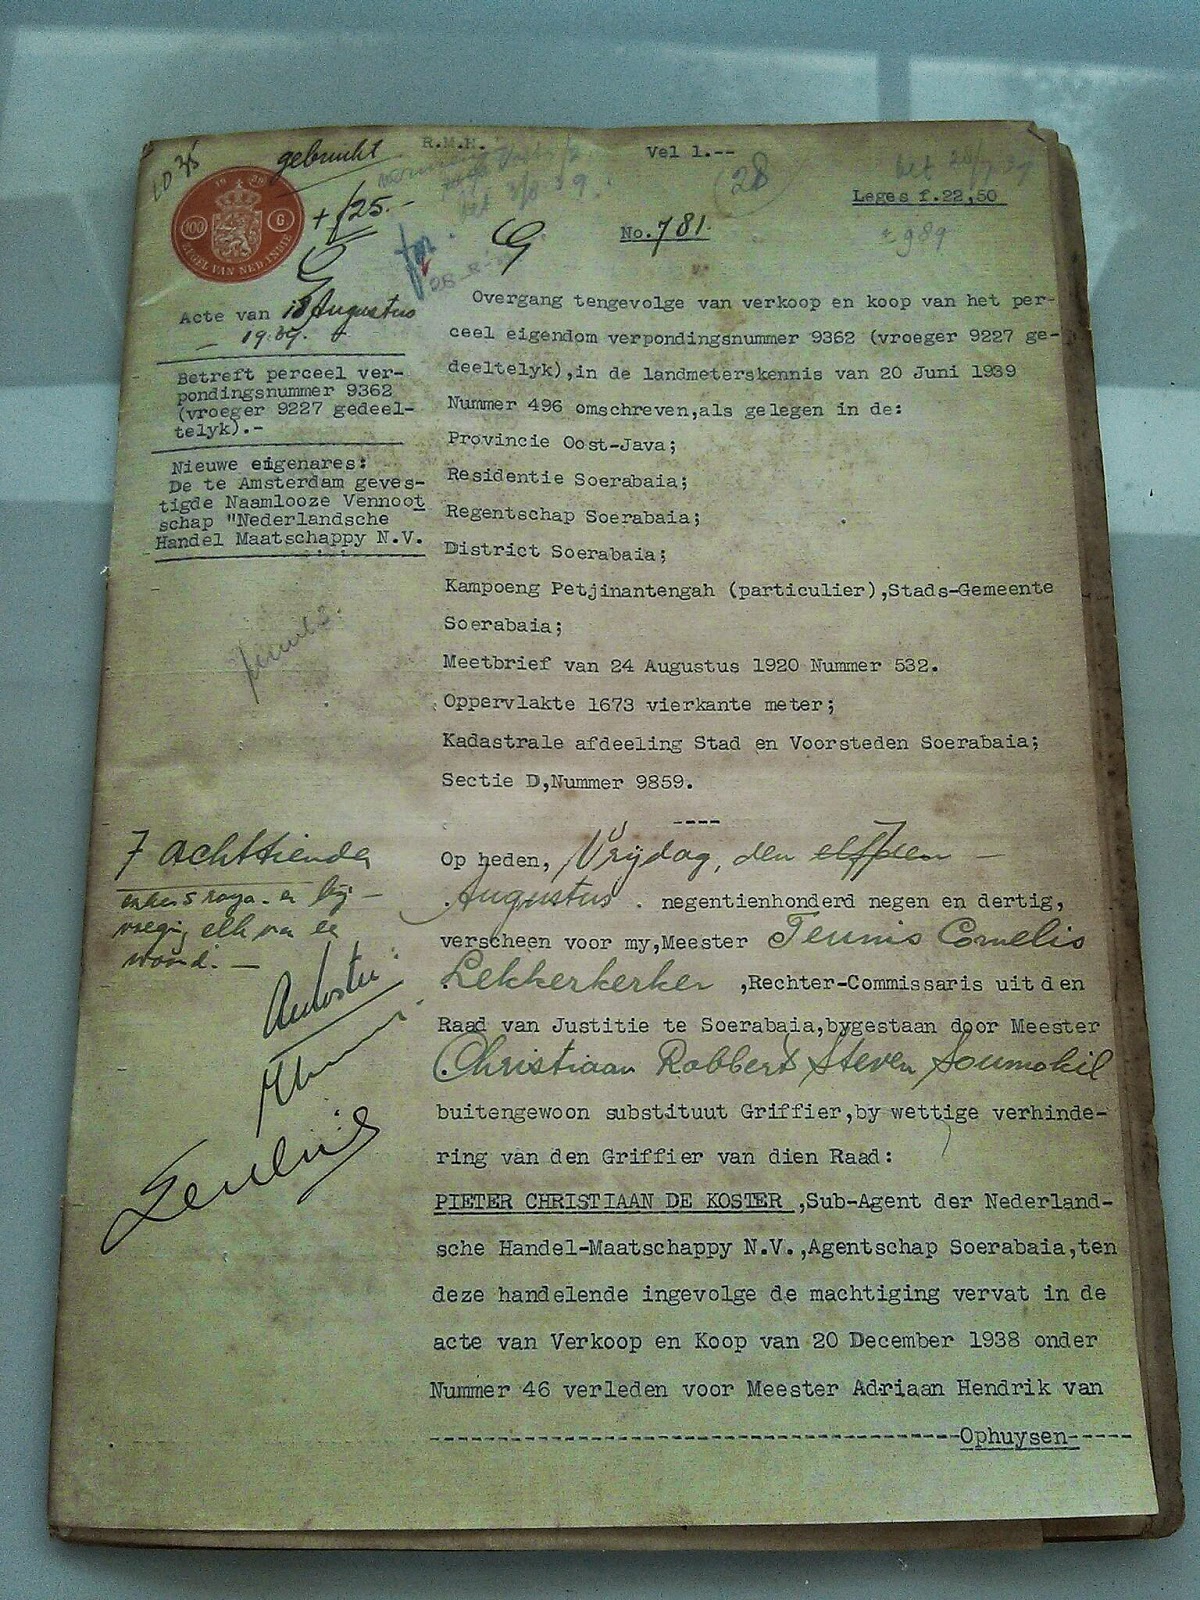 gebruikt
R.M.H.
Vel 1.--
(28)
Leges f.22,50
19 39
100 G
ZEGEL VAN NED. INDIE
+ f 25.-
No. 781.
Acte van 18 Augustus
1939.
Betreft perceel ver-
pondingsnummer 9362
(vroeger 9227 gedeel-
telyk).-
Nieuwe eigenares:
De te Amsterdam geves-
tigde Naamlooze Vennoot
schap "Nederlandsche
Handel Maatschappy N.V.
Overgang tengevolge van verkoop en koop van het per-
ceel eigendom verpondingsnummer 9362 (vroeger 9227 ge-
deeltelyk),in de landmeterskennis van 20 Juni 1939
Nummer 496 omschreven,als gelegen in de:
Provincie Oost-Java;
Residentie Soerabaia;
Regentschap Soerabaia;
District Soerabaia;
Kampoeng Petjinantengah (particulier),Stads-Gemeente
Soerabaia;
Meetbrief van 24 Augustus 1920 Nummer 532.
Oppervlakte 1673 vierkante meter;
Kadastrale afdeeling Stad en Voorsteden Soerabaia;
Sectie D,Nummer 9859.
----
7 achttienden
Op heden, Vrijdag, den elfden -
Augustus . negentienhonderd negen en dertig,
verscheen voor my,Meester Teunis Cornelis
Lekkerkerker ,Rechter-Commissaris uit den
Raad van Justitie te Soerabaia,bygestaan door Meester
Christiaan Robbert Steven Soumokil
buitengewoon substituut Griffier,by wettige verhinde-
ring van den Griffier van dien Raad:
PIETER CHRISTIAAN DE KOSTER ,Sub-Agent der Nederland-
sche Handel-Maatschappy N.V.,Agentschap Soerabaia,ten
deze handelende ingevolge de machtiging vervat in de
acte van Verkoop en Koop van 20 December 1938 onder
Nummer 46 verleden voor Meester Adriaan Hendrik van
Ophuysen